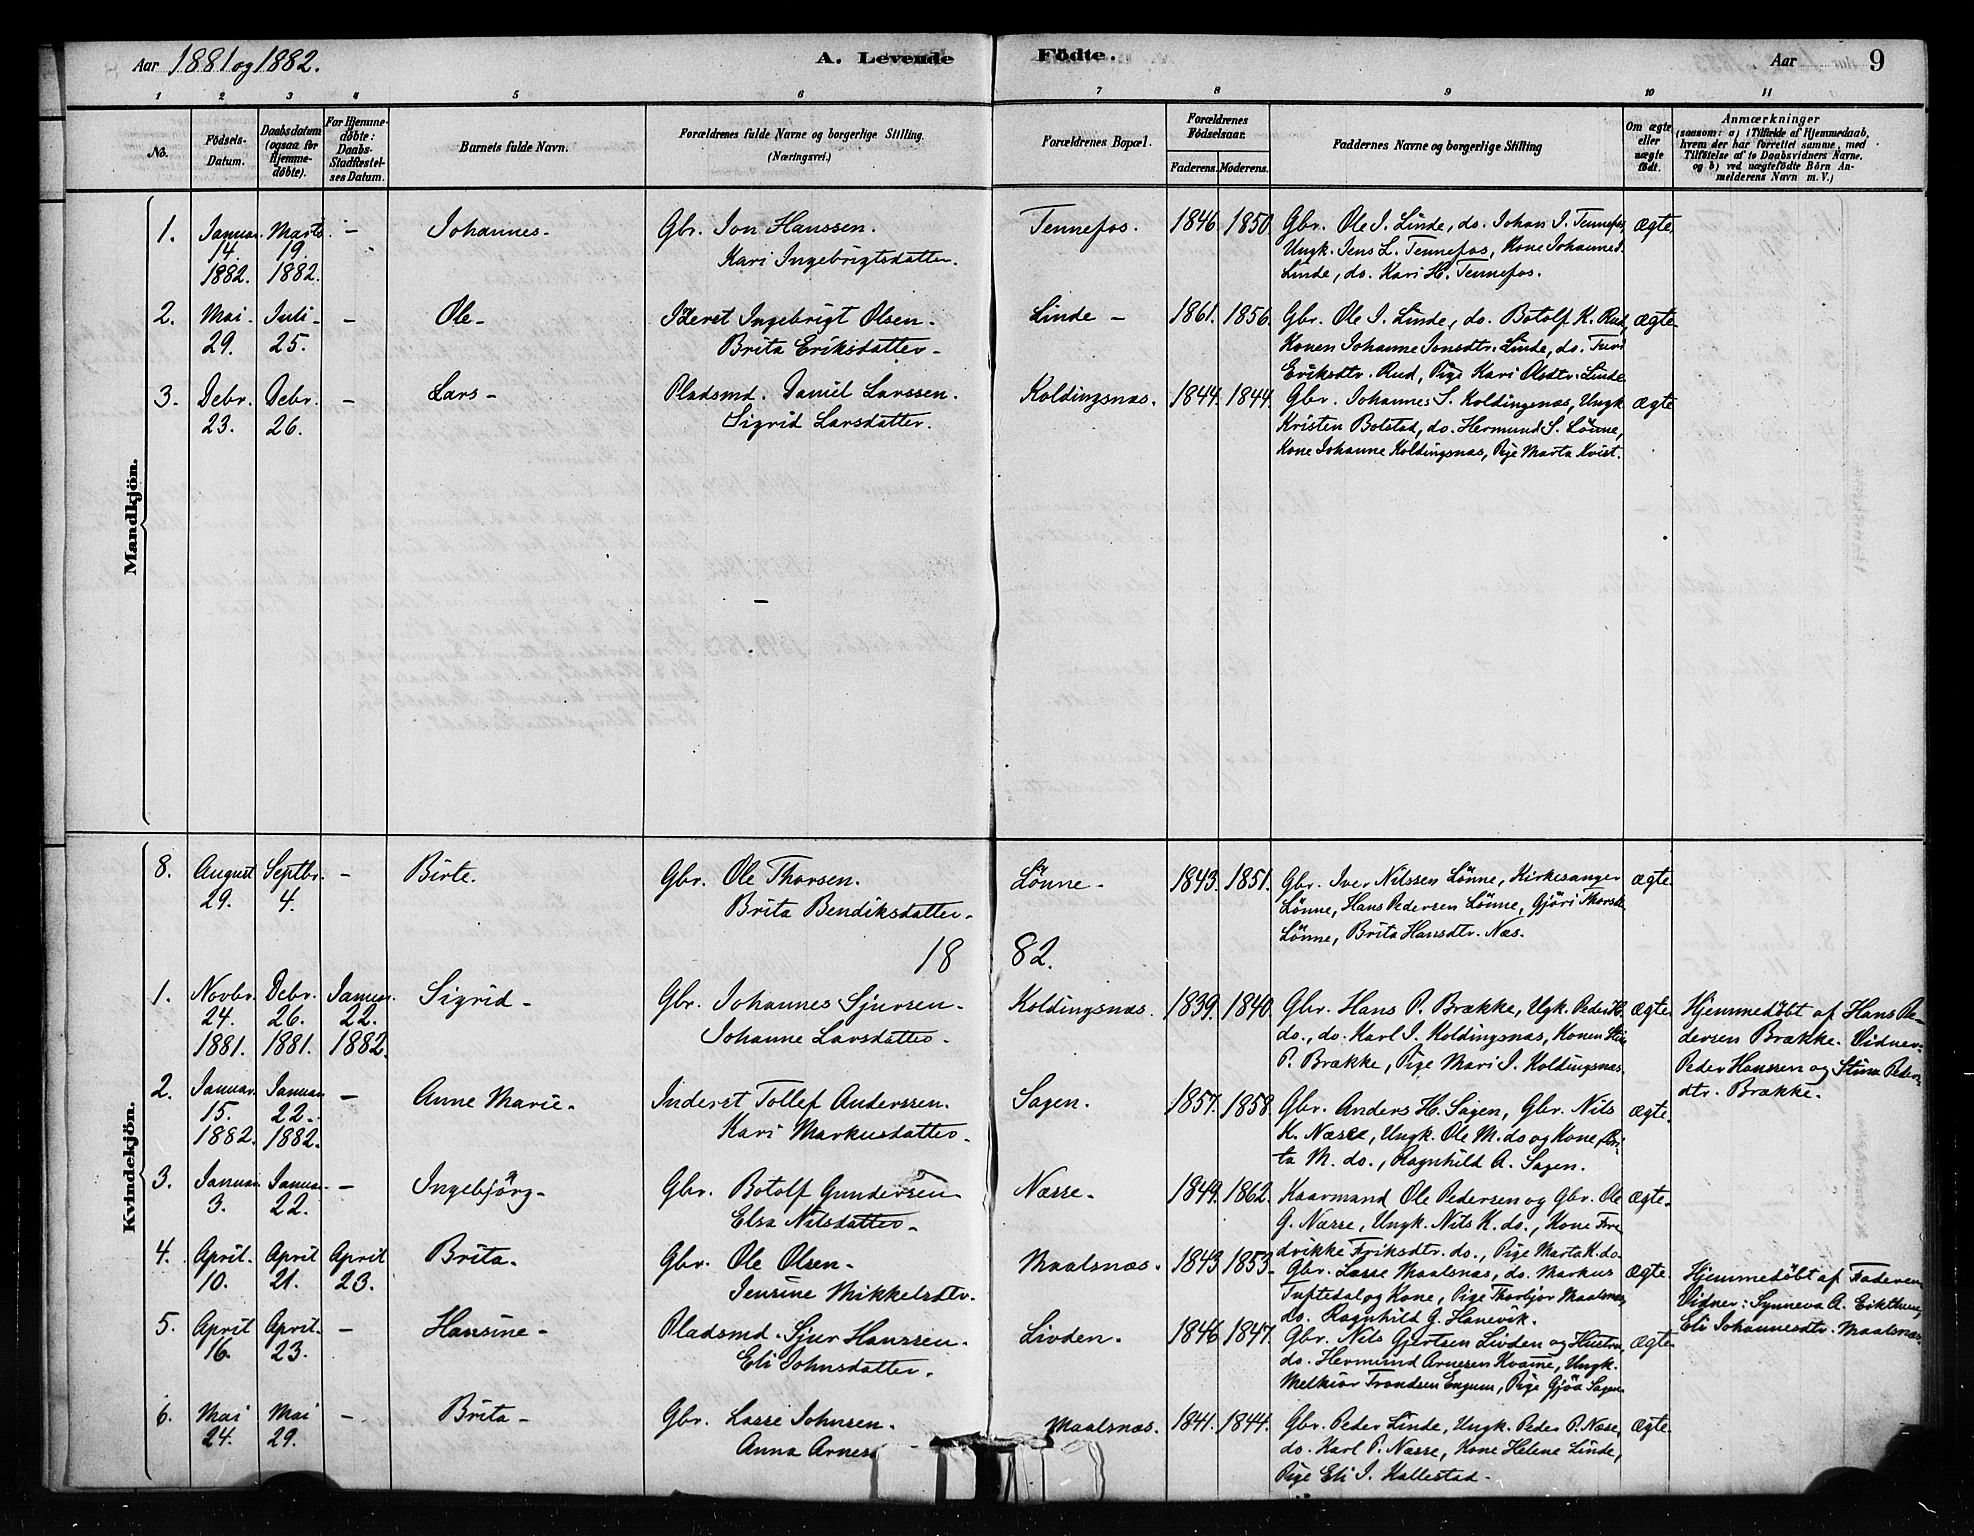 Aar 1881 og 1882. A. Levende Födte. Aar 9
1 2 3 4 5 6 7 8 9 10 11
No. Födsels-Datum. Daabsdatum (ogsaa for Hjemmedöbte). For Hjemmedöbte: Daabs-Stadfæstelses Datum. Barnets fulde Navn. Forældrenes fulde Navne og borgerlige Stilling. (Næringsvei.) Forældrenes Bopæl. Forældrenes Födselsaar. Faderens. Moderens. Faddernes Navne og borgerlige Stilling Om ægte eller uægte födt. Anmærkninger (saasom: a) i Tilfælde af Hjemmedaab, hvem der har forrettet samme, med Tilföielse af to Daabsvidners Navne. og b) ved uægtefödte Börn Anmelderens Navn m. V.)
Mandkjön.
1. Januar Marts - Johannes- Gbr. Jon Hanssen. Tennefos. 1846. 1850. Gbr. Ole I. Linde, do. Johan I. Tennefos, Ægte.
14. 19. Kari Ingebrigtsdatter. Ungk. Jens L. Tennefos, Kone Johanne I.
1882. 1882. Linde, do. Kari H. Tennefos.
2. Mai- Juli- - Ole- Ingebrigt Olsen- Linde - 1861. 1856. Gbr. Ole I. Linde, do. Botolf K. Rud, Ægte-
29. 25. Brita Eriksdatter- Konen Johanne Jonsdtr. Linde, do.
Eriksdtr. Rud, Pige Kari Olsdtr. Linde
3. Debr. Debr. - Lars- Pladsmd. Daniel Larssen. Koldingsnæs. 1844. 1844. Gbr. Johannes S. Koldingsnæs, Ungk. Ægte
23. 26. Sigrid Larsdatter. Kristen Bolstad, do. Hermund S. Lönne,
Kone Johanne Koldingsnæs, Pige Marta Kvist.
Kvindekjön.
8. August Septbr. - Birte. Gbr. Ole Thorsen. Lönne- 1843. 1851. Gbr. Iver Nilssen Lönne, Kirkesanger Ægte
29. 4. Brita Bendiksdatter- Lönne, Hans Pedersen Lönne, Gjöri
Lönne, Brita Hansdtr. Næs.
18 82.
1. Novbr. Debr. Januar. Sigrid- Gbr. Johannes Sjursen- Koldingsnæs. 1839. 1840. Gbr. Hans P. Brække, Ugk. Peder H. Ægte. Hjemmedöbt af Hans Pe-
24. 26. 22. Johanne Larsdatter- do., do. Karl I. Koldingsnæs, Konen dersen Brække. Vidner:
1881. 1881. 1882. P. Brække, Pige Mari I. Koldingsnæs Peder Hanssen og Stina Peders-
dtr. Brække.
2. Januar. Januar - Anne Marie. Inderst Tollef Anderssen. Sagen. 1857. 1858. Gbr. Anders H. Sagen, Gbr. Nils Ægte.
15. 22. Kari Markusdatter- K. Næsse, Ungk. Ole M. do og Kone Bri-
1882. 1882. ta M. do., Ragnhild A. Sagen.
3. Januar. Januar. - Ingebjörg- Gbr. Botolf Gundersen- Næsse- 1849. 1862. Kaarmand Ole Pedersen og Gbr. Ole Ægte-
3. 22. Elsa Nilsdatter- G. Næsse, Ungk. Nils K. do., Kone Fre-
drikke Eriksdtr. do., Pige Marta K. do-
4. April. April April Brita- Gbr. Ole Olsen- Maalsnæs. 1843 1853- Gbr. Lasse Maalsnæs, do. Markus Ægte. Hjemmedöbt af Faderen
10. 21. 23. Jensine Mikkelsdtr. Tuftedal og Kone, Pige Thorbjör Maalsnæs, Vidner: Synneva A. Eikthun,
do. Ragnhild G. Hanevik. Eli Johannesdtr. Maalsnæs
5. April April. - Hansine- Pladsmd. Sjur Hanssen. Livden. 1846. 1847. Gbr. Nils Gjertsen Livden og Hustru, Ægte.
16. 23. Eli Johnsdatter. do. Hermund Arnesen Kvame, Ungk.
Melkior Trondsen Engum, Pige Gjöa Sagen
6. Mai Mai - Brita- Gbr. Lasse Johnsen. Maalsnæs. 1841. 1844. Gbr. Peder Linde, Ungk. Peder P. Næse, Ægte.
24. 29. Anna Arnes do. Karl P. Næsse, Kone Helene Linde,
Pige Eli I. Kallestad-